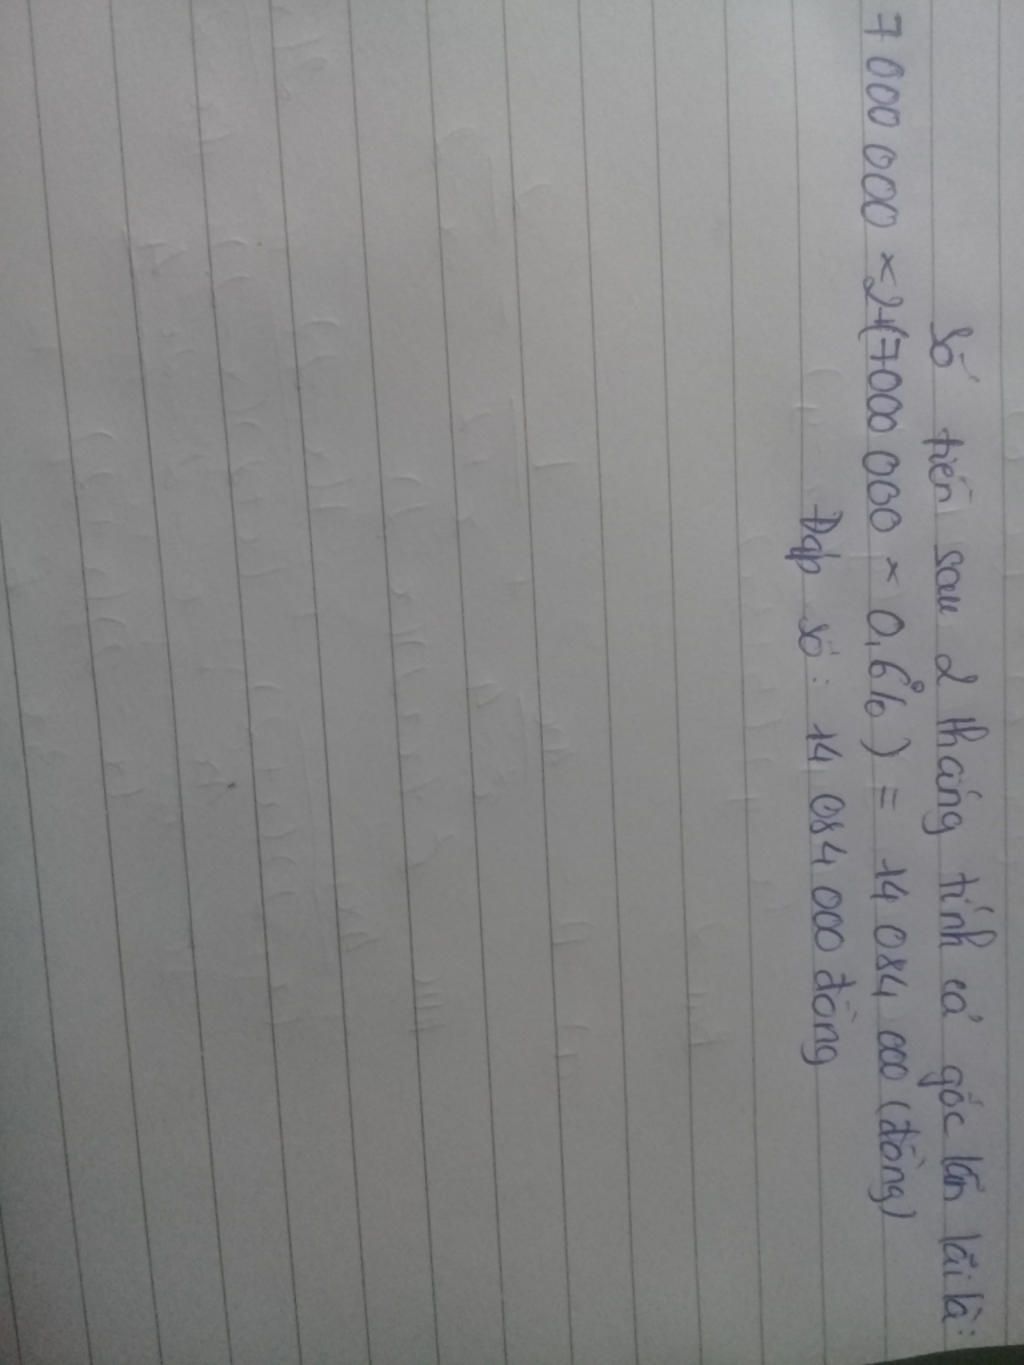 Số tiền sau 2 tháng tính cả gốc lẫn lãi là:
7 000 000 × 2+(7000 000 × 0,6%) = 14 084 000 (đồng)
Đáp số: 14 084 000 đồng